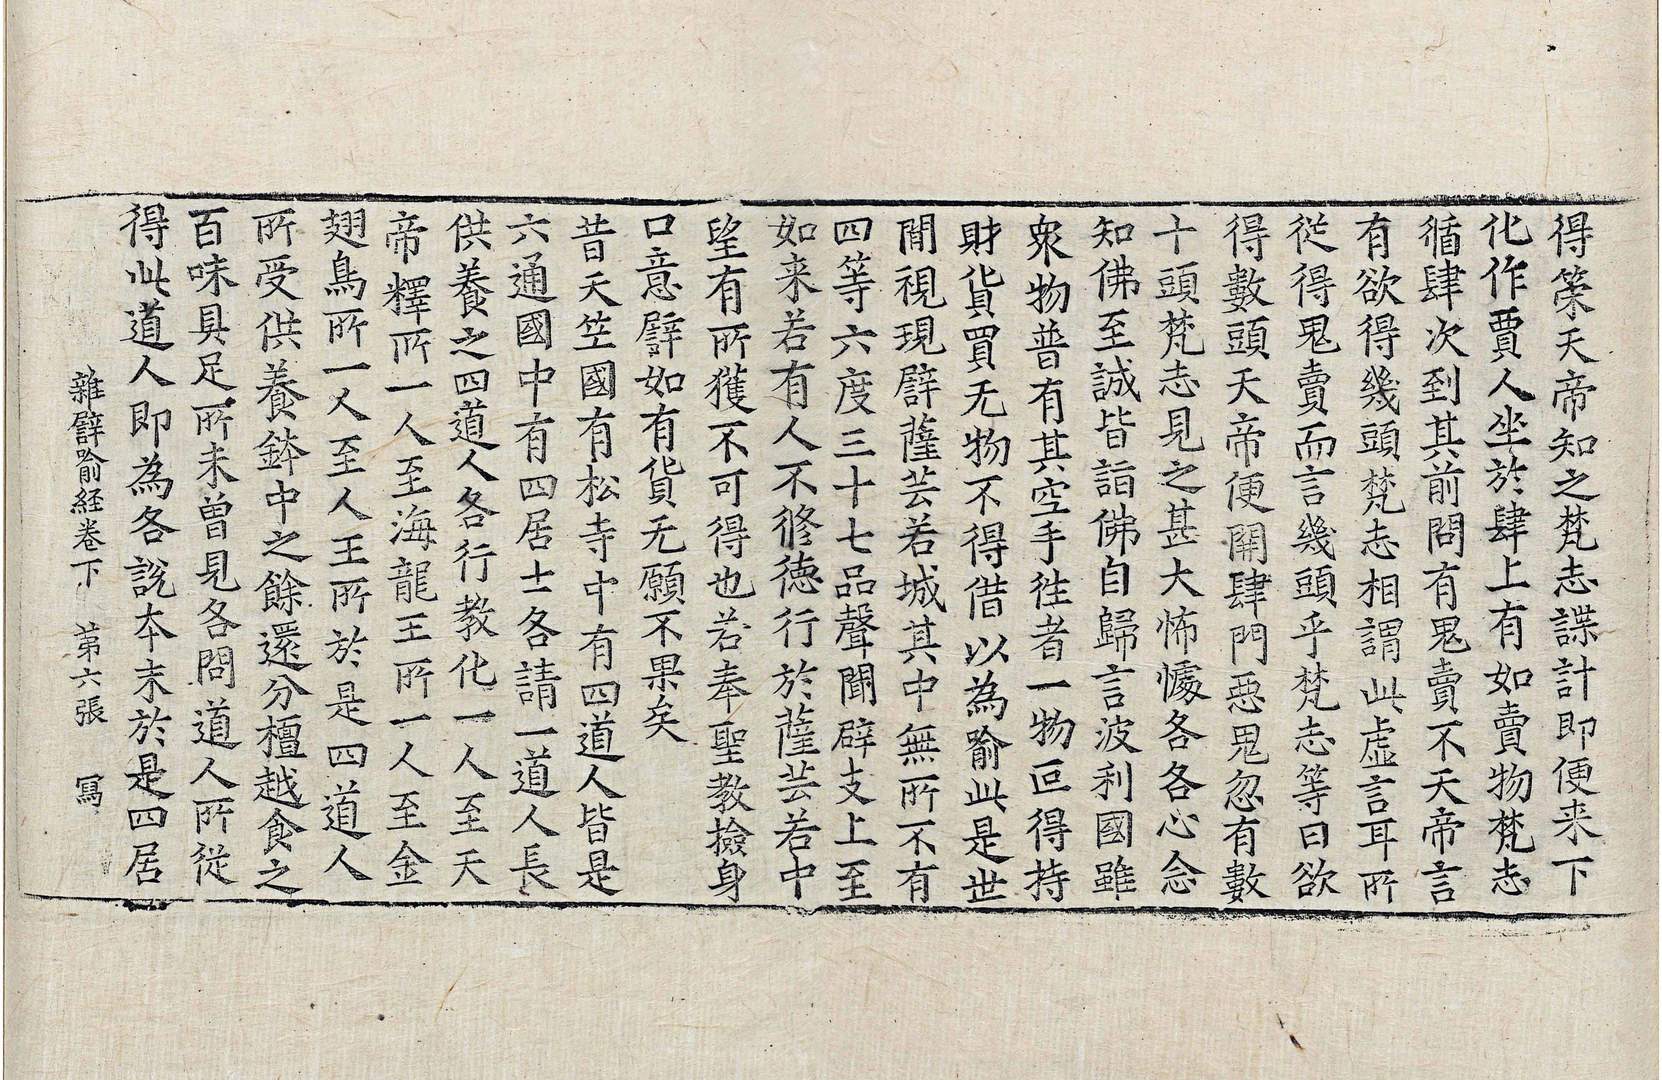 得筞天帝知之梵志諜計即便来下
化作賈人坐於肆上有如賣物梵志
循肆次到其前問有鬼賣不天帝言
有欲得幾頭梵志相謂此虛言耳所
從得鬼賣而言幾頭乎梵志等曰欲
得數頭天帝便開肆門惡鬼忽有數
十頭梵志見之甚大怖懅各各心念
知佛至誠皆詣佛自歸言波利國雖
衆物普有其空手徃者一物叵得持
財貨買无物不得借以為喻此是世
閒視現譬薩芸若城其中無所不有
四等六度三十七品聲聞辟支上至
如来若有人不修德行於薩芸若中
望有所獲不可得也若奉聖教撿身
口意譬如有貨无願不果矣
昔天笠國有松寺中有四道人皆是
六通國中有四居士各請一道人長
供養之四道人各行教化一人至天
帝釋所一人至海龍王所一人至金
翅鳥所一人至人王所於是四道人
所受供養鉢中之餘還分檀越食之
百味具足所未曾見各問道人所從
得此道人即為各說本末於是四居
雜譬喻経卷下 第六張 寫